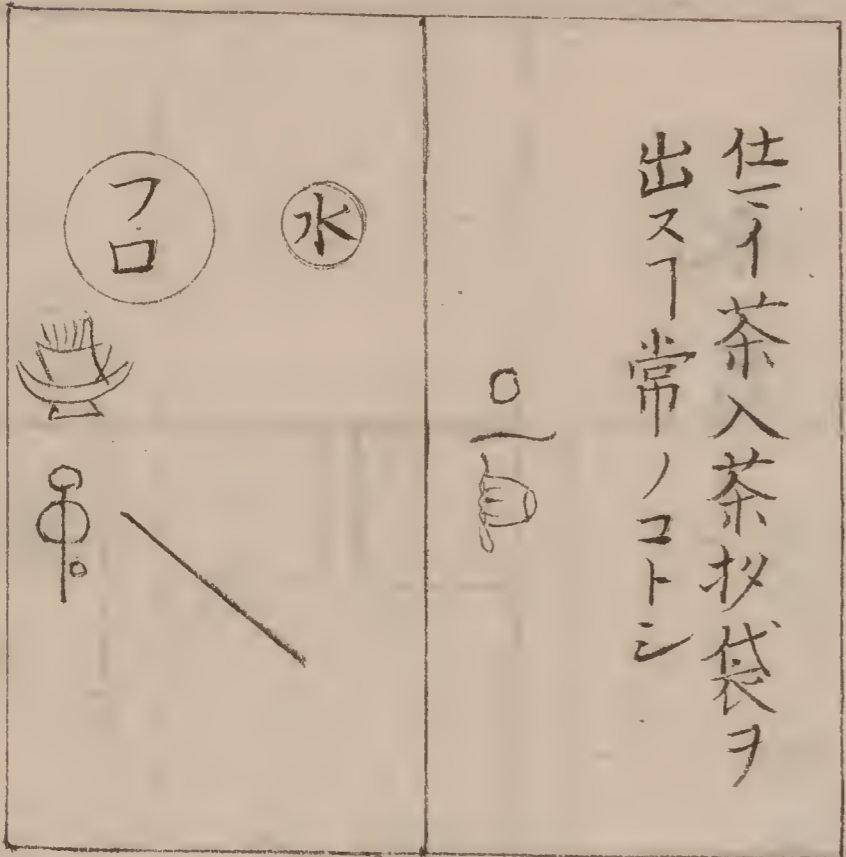 仕マイ茶入茶杓袋ヲ
出スヿ常ノコトシ
水
フロ